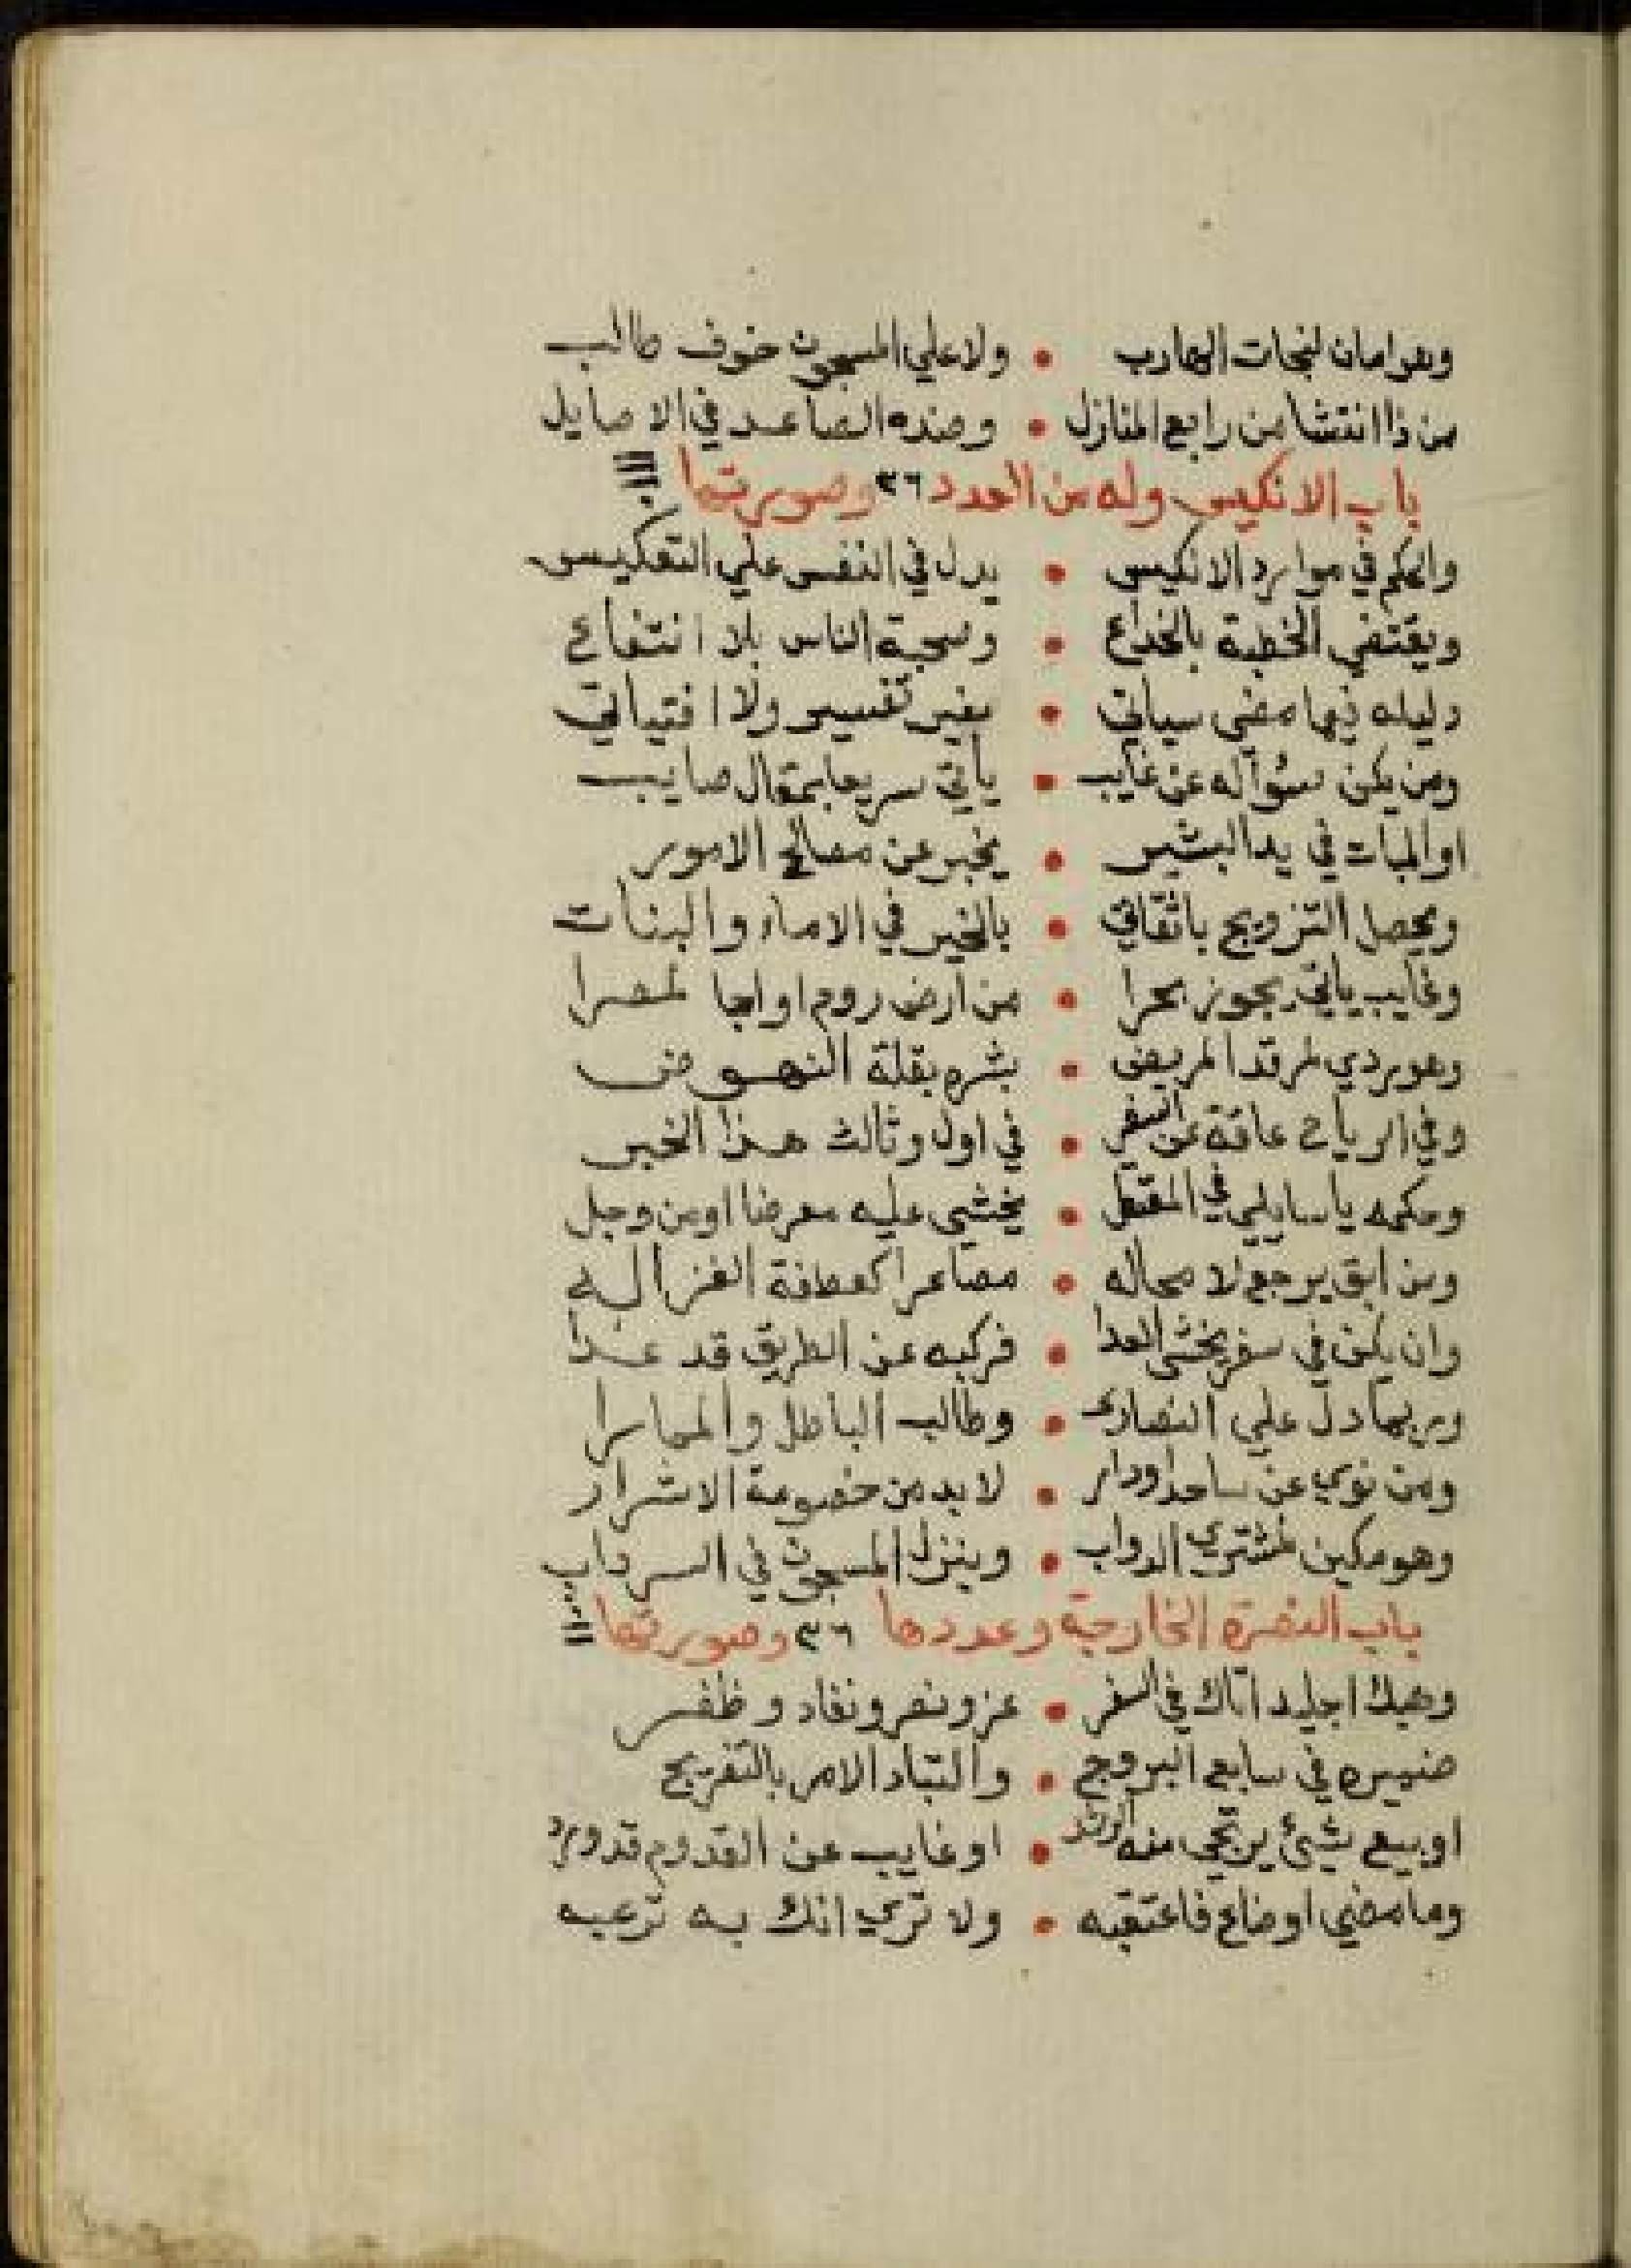 وهو امان لنجات الهارب • ولا علي المسجون خوف طالب
من ذا انتشا من رابع المنازل • وضده الصاعد في الاصايل
باب الانكيس وله من العدد ٣٦ وصورتها
والحكم في موارد الانكيس • يدل في النفس علي التعكيس
ويقتضي الخطبة بالخداع • وصحبة الناس بلا انتفاع
دليله فيما مضى سياتي • بغير تفسير ولا افتياتي
ومن يكن سؤاله عن غايب • يأتي سريعا بمقال صايب
او المبات في يد البشير • يخبر عن مصالح الامور
ويحصل التزويج باثقاتي • بالخير في الاماء والبنات
وغايب ياتي يجوز بحرا • من أرض روم او لمصرا
وهو ردي لمرقد المريض • بشره بقلة النهوض
وفي الرياح عاقة عن السفر • في اول وثالث هذا الخبر
وحكمه يا سايلي في • يخشى عليه معرضا او من وجل
ومن ابق يرجع لا محاله • كعطفة الغزاله
وان يكن في سفر يخشى العدا • فركبه عن الطريق قد عدا
وربما دل علي النصارى • وطالب الباطل
ومن نوي عن ودار • لا بد من خصومة الاشرار
وهو مكين لمشتري الدواب • وينزل المسجون في السرداب
باب النصرة الخارجة وعددها ٣٦ وصورتها
اتاك في السفر • عز ونصر ونفاد وظفر
ضميره في سابع البروج • الامر بالتفريج
او بيع شئ يرتجي منه • او غايب عن القدوم قد ورد
وما مضي او ضاع فاعتقبه • ولا تري انك به ترعبه